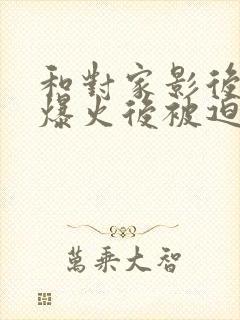 和對家影後
爆火後被迫
萬乘大智